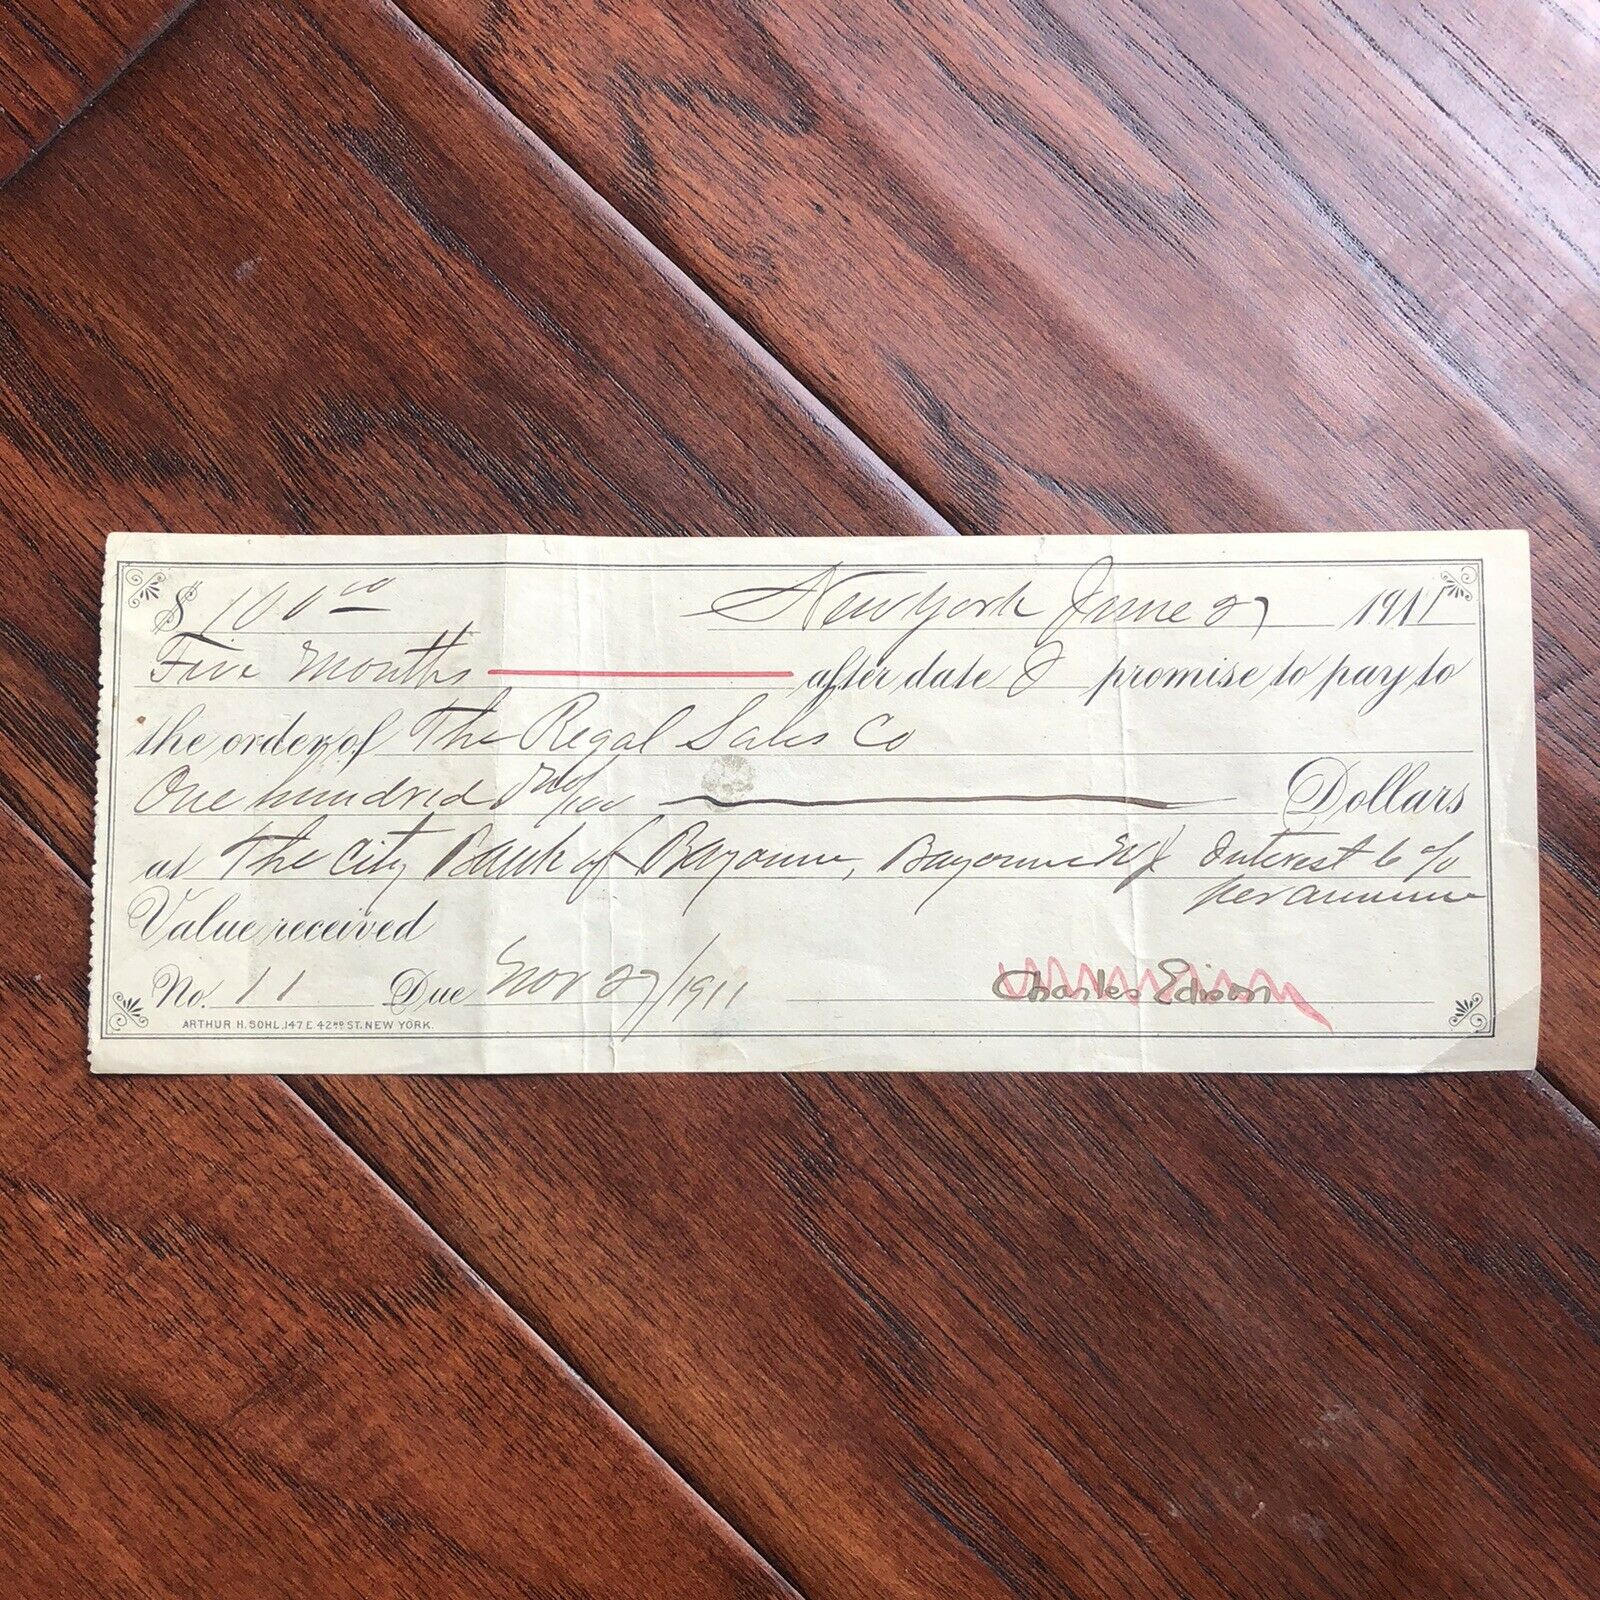 $ 100 00 New York June 27 1911
Five Months after date I promise to pay to
the order of The Regal Sales Co
One hundred & no/100 Dollars
at The City Bank of Bayonne, Bayonne NJ Interest 6 %
per annum
Value received
No. 11 Due Nov 27/1911 Charles Edison
ARTHUR H. SOHL, 147 E 42ND ST. NEW YORK.